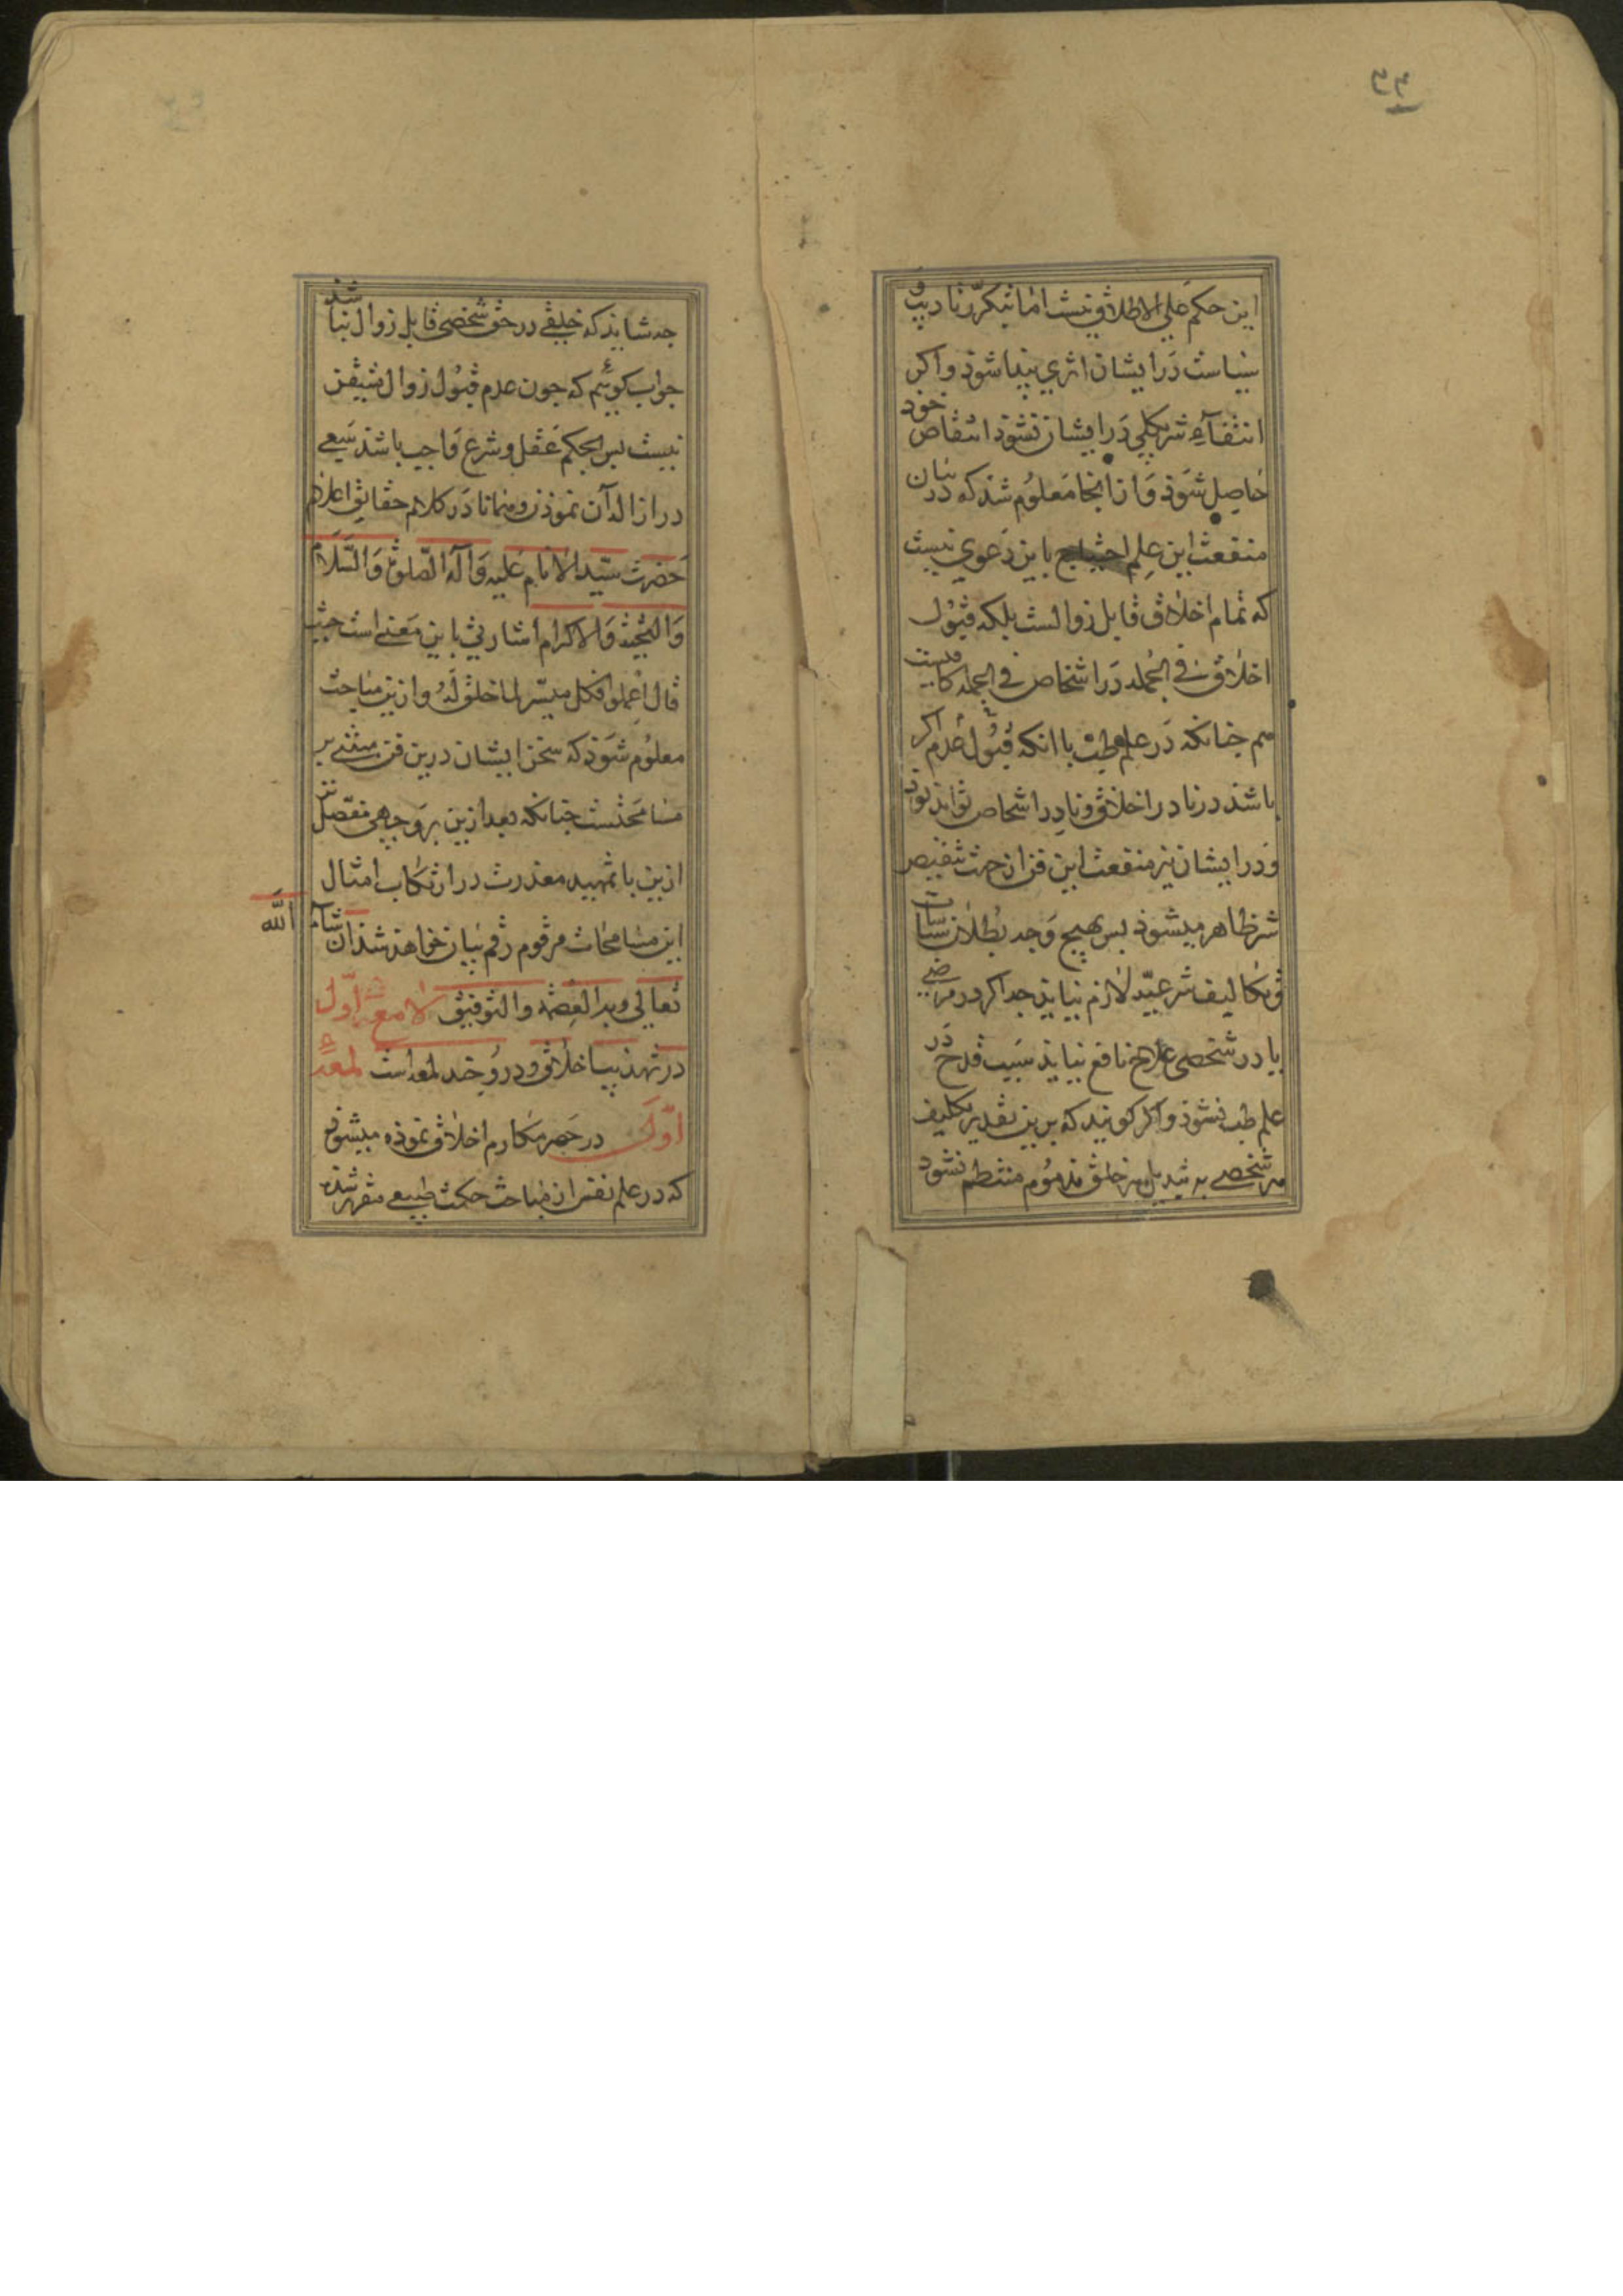 ٣٤
این حکم علی الاطلاق نیست اما بتکرر تادیب و
سیاست در ایشان اثری پیدا شوذ و اکر
انتفآء شر بکلی در ایشان نشوذ انتقاص خود
حاصل شوذ و از اینجا معلوم شذ که در بیان
منفعت این علم احتیاج باین دعوی نیست
که تمام اخلاق قابل زوالست بلکه قبول
اخلاق فی الجمله در اشخاص فی الجمله کافیست
هم جنانکه در علم طب با انکه قبول عدم اکر
باشذ در نادر اخلاق و نادر اشخاص تواند بود
و در ایشان نیز منفعت این فن از جهت تنقیص
شر ظاهر میشوذ بس بهیج وجه بطلان سیاسات
و تکالیف شرعیه لازم نیایذ جه اکر در مرضی
یا در شخصی علاج نافع نیایذ سبب قدح در
علم طب نشوذ و اکر کویند که برین تقدیر تکلیف
هر شخصی به تبدیل هر خلق مذموم منتظم نشود
جه شایذ که خلقی در حق شخصی قابل زوال نباشد
جواب کوئیم که جون عدم قبول زوال متیقن
نیست بس بحکم عقل و شرع واجب باشذ سعی
در ازاله آن نموذن و همانا در کلام حقایق اعلام
حضرت سید الانام علیه و آله الصلوة والسلام
والتحیة والاکرام اشارتی باین معنی است حیث
قال اعملوا فکل میسر لما خلق له و ازین مباحث
معلوم شوذ که سخن ایشان درین فن مبتنی بر
مسامحتست جنانکه بعد ازین بر وجهی مفصل تر
ازین با تمهید معذرت در ارتکاب امثال
این مسامحات مرقوم رقم بیان خواهذ شذ ان شاء الله
تعالی و به العصمة والتوفیق لامعه اول
در تهذیب اخلاق و درو جند لمعه است لمعه
اول در حصر مکارم اخلاق نموذه میشوذ
که در علم نفس از مباحث حکمت طبیعی مقرر شده